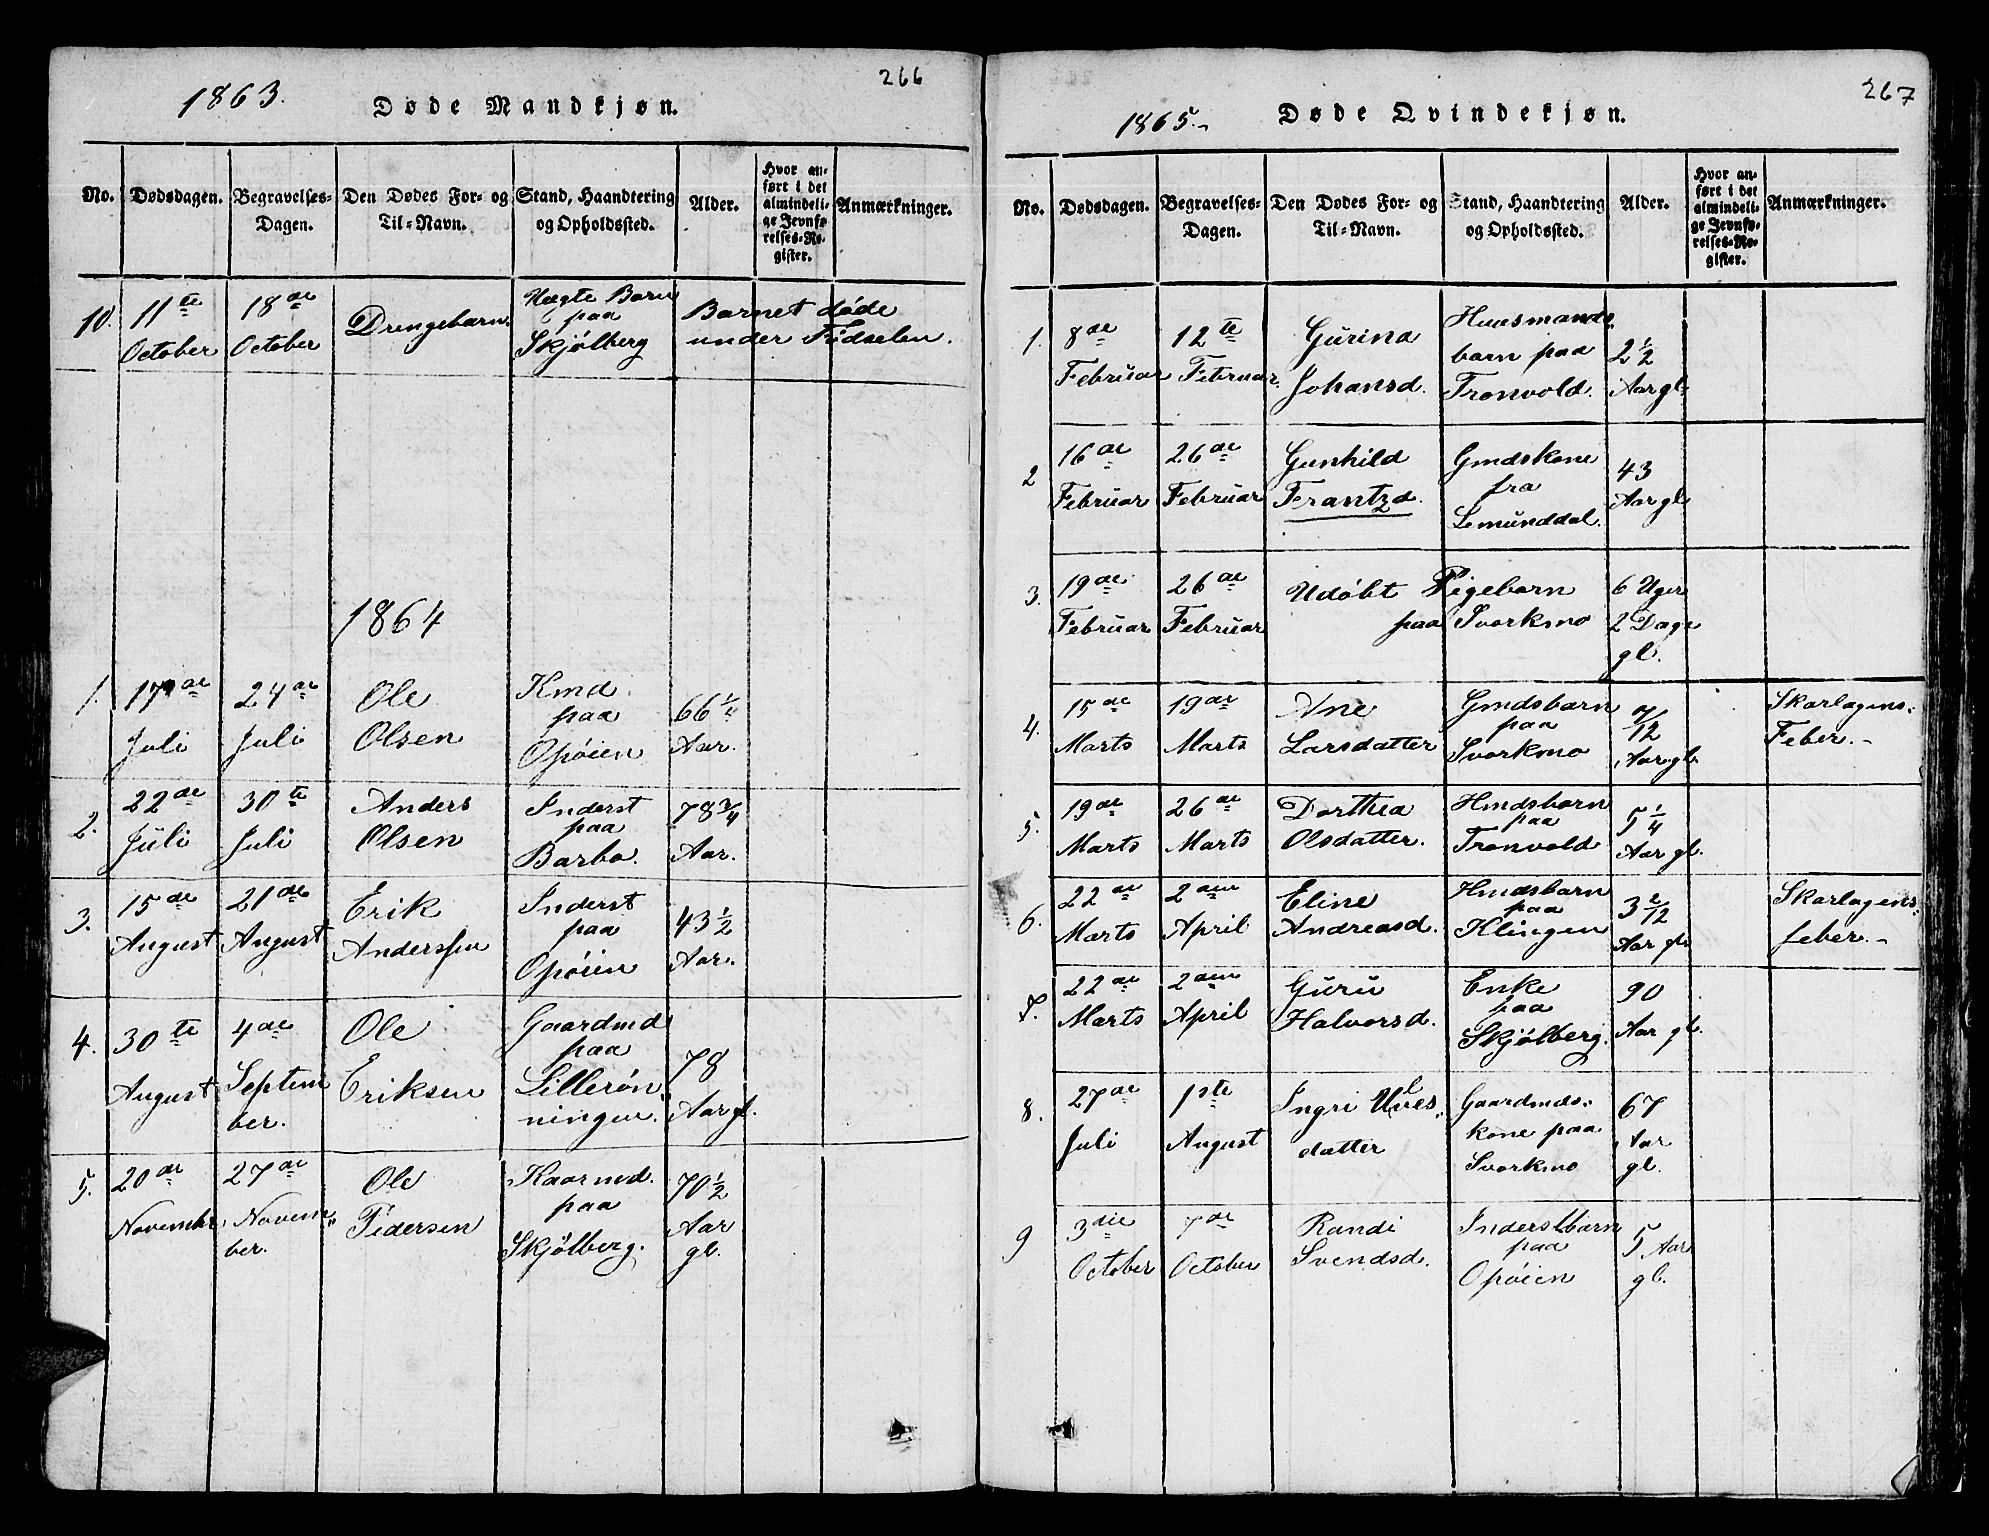 266
1863.
Døde Mandkjøn.
No. Dødsdagen. Begravelses-Dagen. Den Dødes For- og Til-Navn. Stand, Haandtering og Opholdssted. Alder. Hvor anført i det almindelige Jevnførelses-Register. Anmærkninger.
10. 11te October 18de October Drengebarn. Uægte Barn paa Skjølberg Barnet døde under Fødselen.
1864
1. 17de Juli 24de Juli Ole Olsen Kmd. paa Opøien 66 1/4 Aar.
2. 22de Juli 30te Juli Anders Olsen Inderst paa Barbo. 78 3/4 Aar.
3. 15de August 21de August Erik Anderssen Inderst paa Opøien 43 1/2 Aar.
4. 30te August 4de September. Ole Eriksen Gaardmd paa Lillerønningen. 78 Aar gl.
5. 20de Novembr. 27de November. Ole Pedersen Kaarmd. paa Skjølberg. 70 1/2 Aar gl.
267
1865.
Døde Qvindekjøn.
No. Dødsdagen. Begravelses-Dagen. Den Dødes For- og Til-Navn. Stand, Haandtering og Opholdssted. Alder. Hvor anført i det almindelige Jevnførelses-Register. Anmærkninger.
1. 8de Februar 12te Februar. Gurina Johansd. Huusmandsbarn paa Tronvold. 2 1/2 Aar gl.
2 16de Februar 26de Februar Gunhild Frantzd. Gmdskone fra Lemunddal. 43 Aar gl
3. 19de Februar 26de Februar Udøbt Pigebarn paa Svorkmo 6 Uger 2 Dage gl.
4. 15de Marts 19de Marts Ane Larsdatter Gmdsbarn paa Svorkmo 7/12 Aar gl. Skarlagens-Feber.
5. 19de Marts 26de Marts Dorthea Olsdatter. Hmdsbarn paa Tronvold 5 1/4 Aar gl.
6. 22de Marts 2den April Eline Andreasd. Hmdsbarn paa Klingen 3 2/12 Aar gl. Skarlagens-feber.
7. 22de Marts 2den April Guru Halvorsd. Enke paa Skjølberg. 90 Aar gl.
8. 27de Juli 1ste August Ingri datter Gaardmdskone paa Svorkmo 67 Aar gl.
9 3die October 7de October Randi Svendsd. Inderstbarn paa Opøien 5 Aar gl.